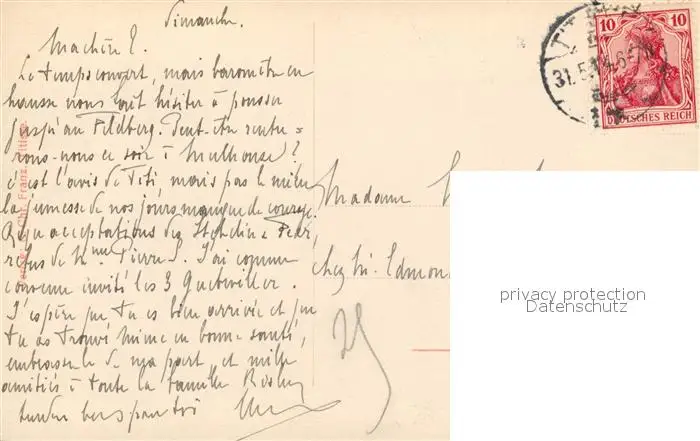 Dimanche.
Ma chère E.
Le temps couvert, mais baromètre en
hausse nous fait hésiter à pousser
jusqu'au Feldberg. Peut-être rentre=
rons-nous ce soir à Mulhouse?
C'est l'avis de Titi, mais pas le mien
la jeunesse de nos jours manque de courage.
Reçu acceptations des Stehelin &
refus de Mme Pierre S. J'ai comme
convenu invité les 3 Guebwiller.
J'espère que tu es bien arrivée et que
tu as trouvé Mimi en bonne santé,
embrasse-le de ma part, et mille
amitiés à toute la famille Risler
tendres baisers pour toi
Madame
chez Mr. Edmon
25
10 10
DEUTSCHES REICH
31.5.14.6-7N
Franz,
privacy protection
Datenschutz